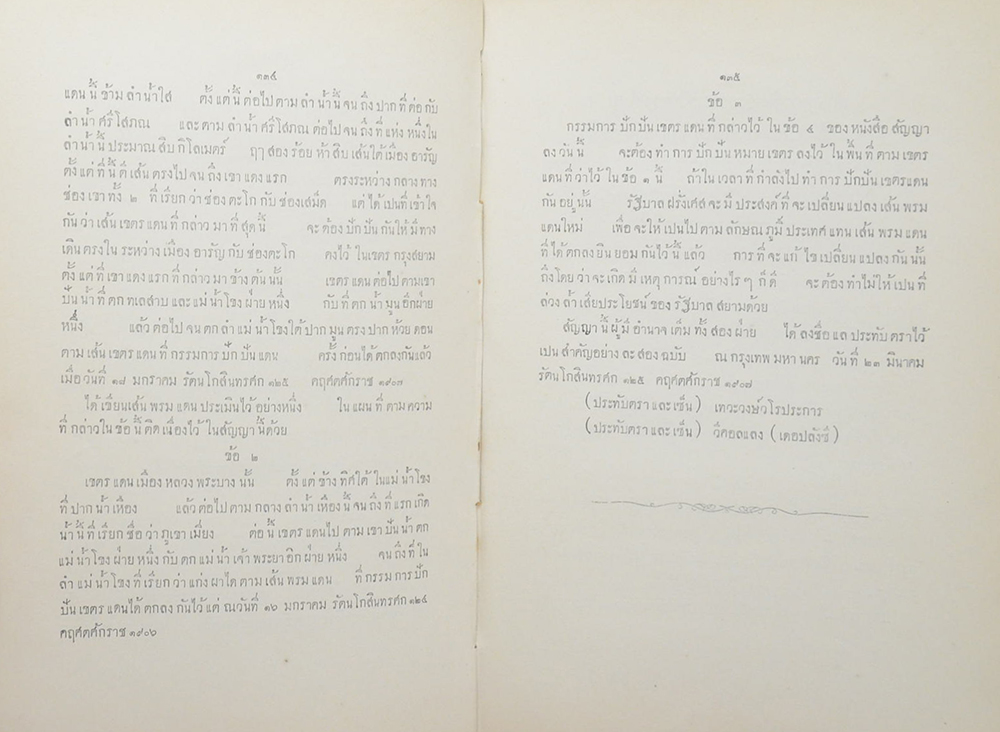 ๑๓๔
แดน นี้ ข้าม ลำ น้ำ ใส ตั้ง แต่ นี้ ต่อ ไป ตาม ลำ น้ำ นี้ จน ถึง ปาก ที่ ต่อ กับ
ลำ น้ำ ศรี โสภณ และ ตาม ลำ น้ำ ศรี โสภณ ต่อ ไป จน ถึง ที่ แห่ง หนึ่ง ใน
ลำ น้ำ นี้ ประมาณ สิบ กิโลเมตร์ ฤๅ สอง ร้อย ห้า สิบ เส้น ใต้ เมือง อารัญ
ตั้ง แต่ ที่ นี้ ตี เส้น ตรง ไป จน ถึง เขา แดง แรก ตรง ระหว่าง กลาง ทาง
ช่อง เขา ทั้ง ๒ ที่ เรียก ว่า ช่อง ตะโก กับ ช่อง เสม็ด แต่ ได้ เปน ที่ เข้า ใจ
กัน ว่า เส้น เขตร แดน ที่ กล่าว มา ที่ สุด นี้ จะ ต้อง ปัก ปัน กัน ให้ มี ทาง
เดิน ตรง ใน ระหว่าง เมือง อารัญ กับ ช่อง ตะโก คง ไว้ ใน เขตร กรุง สยาม
ตั้ง แต่ ที่ เขา แดง แรก ที่ กล่าว มา ข้าง ต้น นั้น เขตร แดน ต่อ ไป ตาม เขา
ปัน น้ำ ที่ ตก ทเลสาบ และ แม่ น้ำ โขง ฝ่าย หนึ่ง กับ ที่ ตก น้ำ มูน อีก ฝ่าย
หนึ่ง แล้ว ต่อ ไป จน ตก ลำ แม่ น้ำ โขง ใต้ ปาก มูน ตรง ปาก ห้วย ดอน
ตาม เส้น เขตร แดน ที่ กรรมการ ปัก ปัน แดน ครั้ง ก่อน ได้ ตก ลง กัน แล้ว
เมื่อ วัน ที่ ๑๘ มกราคม รัตนโกสินทรศก ๑๒๕ คฤศตศักราช ๑๙๐๗
ได้ เขียน เส้น พรม แดน ประเมิน ไว้ อย่าง หนึ่ง ใน แผน ที่ ตาม ความ
ที่ กล่าว ใน ข้อ นี้ ติด เนื่อง ไว้ ใน สัญญา นี้ ด้วย
ข้อ ๒
เขตร แดน เมือง หลวง พระบาง นั้น ตั้ง แต่ ข้าง ทิศ ใต้ ใน แม่ น้ำ โขง
ที่ ปาก น้ำ เหือง แล้ว ต่อ ไป ตาม กลาง ลำ น้ำ เหือง นี้ จน ถึง ที่ แรก เกิด
น้ำ นี้ ที่ เรียก ชื่อ ว่า ภูเขา เมี่ยง ต่อ นี้ เขตร แดน ไป ตาม เขา ปัน น้ำ ตก
แม่ น้ำ โขง ฝ่าย หนึ่ง กับ ตก แม่ น้ำ เจ้า พระยา อีก ฝ่าย หนึ่ง จน ถึง ที่ ใน
ลำ แม่ น้ำ โขง ที่ เรียก ว่า แก่ง ผา ได ตาม เส้น พรม แดน ที่ กรรม การ ปัก
ปัน เขตร แดน ได้ ตก ลง กัน ไว้ แต่ ณวัน ที่ ๑๖ มกราคม รัตนโกสินทรศก ๑๒๔
คฤศตศักราช ๑๙๐๖
๑๓๕
ข้อ ๓
กรรมการ ปัก ปัน เขตร แดน ที่ กล่าว ไว้ ใน ข้อ ๔ ของ หนังสือ สัญญา
ลง วัน นี้ จะ ต้อง ทำ การ ปัก ปัน หมาย เขตร ลง ไว้ ใน พื้น ที่ ตาม เขตร
แดน ที่ ว่า ไว้ ใน ข้อ ๑ นี้ ถ้า ใน เวลา ที่ กำลัง ไป ทำ การ ปัก ปัน เขตร แดน
กัน อยู่ นั้น รัฐบาล ฝรั่งเศส จะ มี ประสงค์ ที่ จะ เปลี่ยน แปลง เส้น พรม
แดน ใหม่ เพื่อ จะ ให้ เปน ไป ตาม ลักษณ ภูมิ ประเทศ แทน เส้น พรม แดน
ที่ ได้ ตก ลง ยิน ยอม กัน ไว้ นี้ แล้ว การ ที่ จะ แก้ ไข เปลี่ยน แปลง กัน นั้น
ถึง โดย ว่า จะ เกิด มี เหตุ การณ์ อย่าง ไร ๆ ก็ ดี จะ ต้อง ทำ ไม่ ให้ เปน ที่
ล่วง ล้ำ เสีย ประโยชน์ ของ รัฐบาล สยาม ด้วย
สัญญา นี้ ผู้ มี อำนาจ เต็ม ทั้ง สอง ฝ่าย ได้ ลง ชื่อ แล ประทับ ตรา ไว้
เปน สำคัญ อย่าง ละ สอง ฉบับ ณ กรุงเทพ มหา นคร วัน ที่ ๒๓ มีนาคม
รัตนโกสินทรศก ๑๒๕ คฤศตศักราช ๑๙๐๗
(ประทับ ตรา และ เซ็น) เทวะวงษ์วโรประการ
(ประทับ ตรา และ เซ็น) วีคอลแลง (เดอปลังซี)